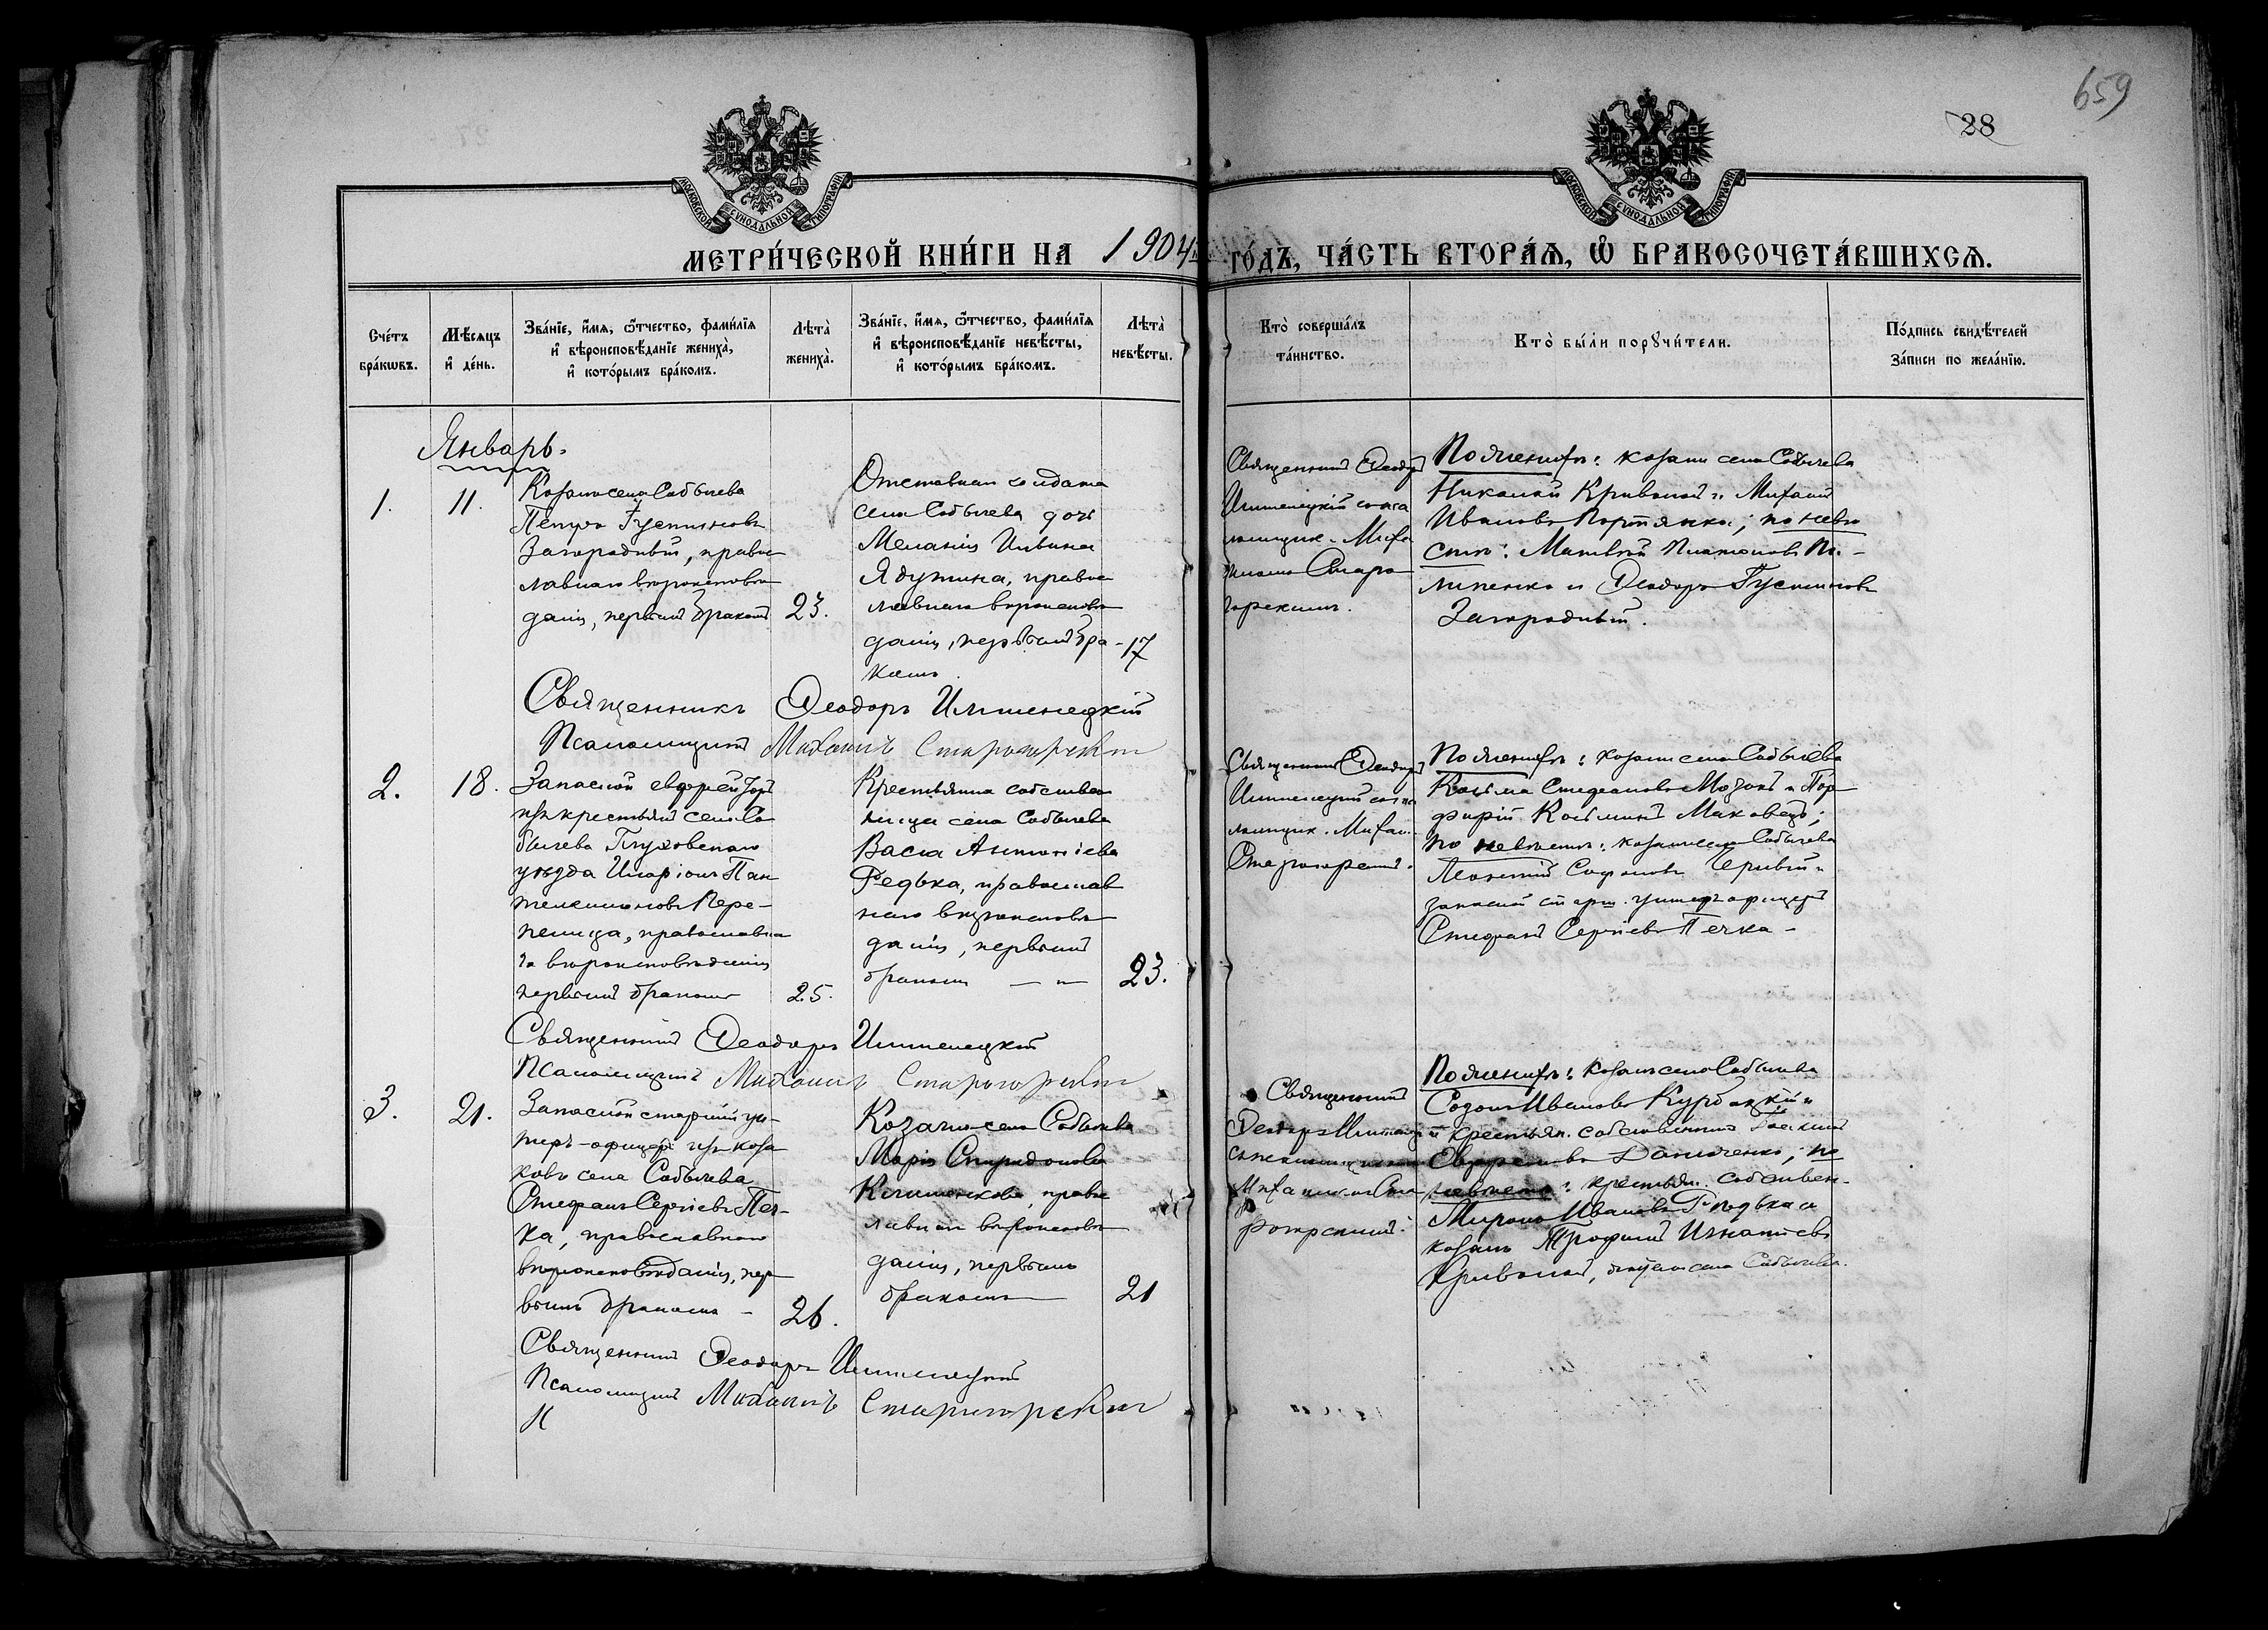 659
28
МОСКОВСКОЙ СѴНОДАЛЬНОЙ ТИПОГРАФІИ
МОСКОВСКОЙ СѴНОДАЛЬНОЙ ТИПОГРАФІИ
МЕТРИ́ЧЕСКОЙ КНИ́ГИ НА 1904й ГО́ДЪ, ЧА́СТЬ ВТОРА́Ѧ, Ѽ БРАКОСОЧЕТА́ВШИХСѦ.
Сче́тъ бра́кѡвъ.
Мѣ́сяцъ и҆ де́нь.
Зва́нїе, и҆́мѧ, ѻ҆́тчество, фами́лїѧ и҆ вѣроисповѣ́данїе жениха̀, и҆ кото́рымъ бра́комъ.
Лѣта̀ жениха̀.
Зва́нїе, и҆́мѧ, ѻ҆́тчество, фами́лїѧ и҆ вѣроисповѣ́данїе невѣ́сты, и҆ кото́рымъ бра́комъ.
Лѣта̀ невѣ́сты.
Кто̀ соверша́лъ та́инство.
Кто̀ бы́ли порꙋчи́тели.
По́дпись свидѣ́телей за́писи по жела́нїю.
Январь.
1.
11.
Козакъ села Собычева
Петръ Густиновъ
Загородній, правос
лавнаго вѣроисповѣ
данія, первымъ бракомъ
23.
Отставнаго солдата
села Собычева дочь
Меланія
Ядутина, правос
лавнаго вѣроисповѣ
данія, первымъ бра-
комъ.
17
Священникъ Ѳеодоръ
Имшенецкій съ пса
ломщик. Миха
иломъ Старо
горскимъ.
По женихѣ: козаки села Собычева
Николай Криволай и Михаилъ
Ивановъ Портянко; по невѣ
стѣ: Матвѣй
и Ѳеодоръ Густиновъ
Загородній.
Священникъ Ѳеодоръ Имшенецкій
Псаломщикъ Михаилъ Старогорскій
2.
18.
Запасной ефрейторъ
изъ крестьянъ села Со
бычева Глуховскаго
уѣзда Иларіонъ Пан
телеимоновъ Пере-
пелица, православна
го вѣроисповѣданія
первымъ бракомъ
25.
Крестьянка собствен
ница села Собычева
Васса Антоніева
Редька, православ
наго вѣроисповѣ
данія, первымъ
бракомъ
23.
Священникъ Ѳеодоръ
Имшенецкій съ пса
ломщик. Михаи.
Старогорскимъ.
По женихѣ: козаки села Собычева
Косьма Стефановъ и Пор
фирій Косьминъ Маковецъ;
по невѣстѣ: козаки села Собычева
Леонтій Софоновъ и
запасной старш. унтеръ офицеръ
Стефанъ Сергіевъ Печка-
Священникъ Ѳеодоръ Имшенецкій
Псаломщикъ Михаилъ Старогорскій
3.
21.
Запасной старшій ун-
теръ-офицеръ изъ коза
ковъ села Собычева
Стефанъ Сергіевъ Печ-
ка, православнаго
вѣроисповѣданія, пер
вымъ бракомъ -
26.
Козачка села Собычева
Марія Спиридонова
Клименкова, правос
лавнаго вѣроисповѣ
данія, первымъ
бракомъ
21
Священникъ
Ѳеодоръ Имшенецкій
съ псаломщикомъ
Михаиломъ Ста
рогорскимъ.
По женихѣ: козакъ села Собычева
Созонъ Ивановъ Курбацкій и
крестьян. собственникъ
Данченко; по
невѣстѣ: крестьян. собствен-
Миронъ Ивановъ Редька и
козакъ Трофимъ Игнатіевъ
Криволай, жители села Собычева.
Священникъ Ѳеодоръ Имшенецкій
Псаломщикъ Михаилъ Старогорскій